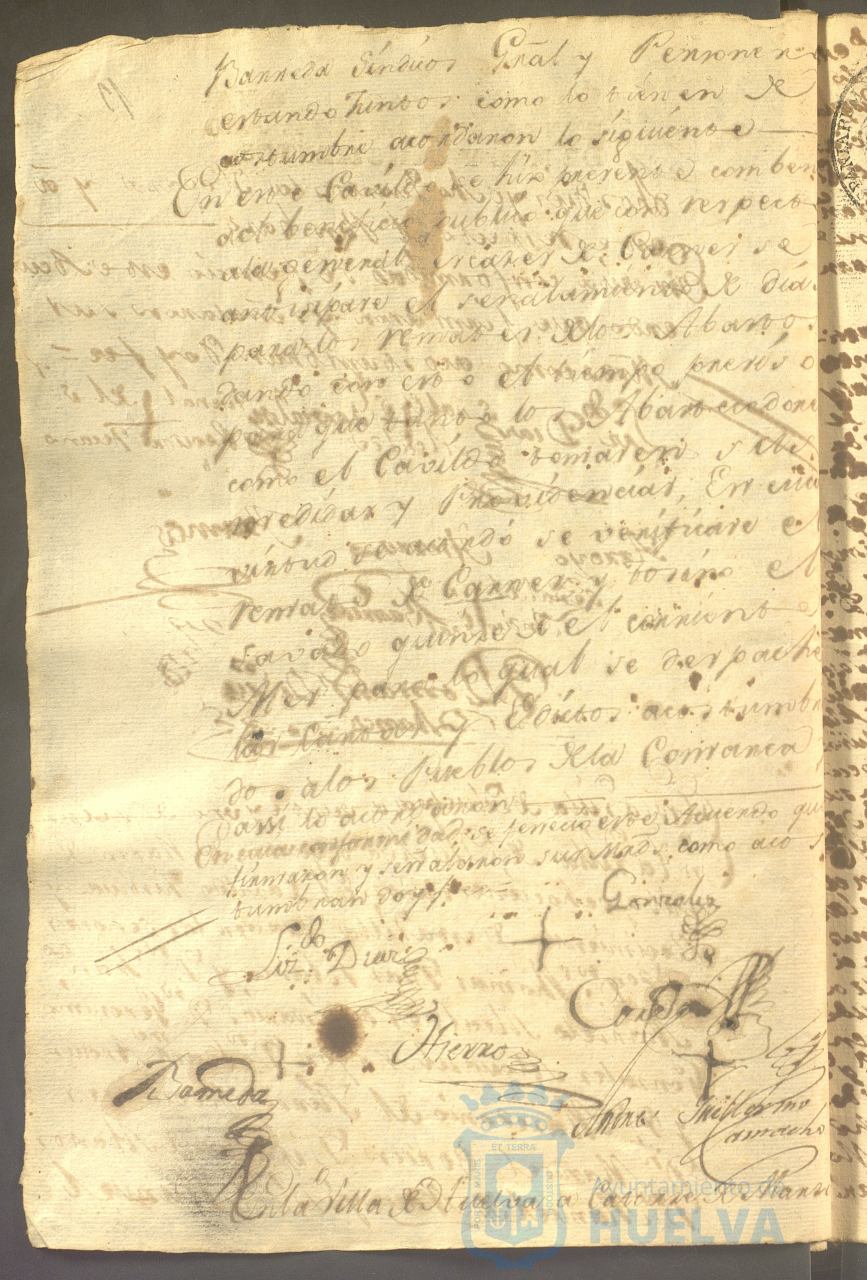 Barreda Síndicos Gñal y Personero
estando Juntos como lo tienen de
costumbre acordaron lo siguiente
En este Cavildo se hizo presente comben
al beneficio publico que con respecto
ala general escases de Carnes se
anticipare el señalamiento de dia
para los remates de los Abastos
dando con esto el tiempo preciso
para que tanto los Abastecedore
como el Cavildo tomaren sus
medidas y Providencias, En cuia
virtud se acordó se verificare el
remate de Carnes y tosino el
Savado quinze de el corriente
Mes para lo qual se despachen
las Cartas y Edictos acostumbra
dos alos Pueblos de la Comarca
y assi lo acordaron
En cuia conformidad se fenecio este Acuerdo que
firmaron y señalaron sus Mrds. como acos
tumbran doy fee=
Gonzalez
Lizdo Diaz
Hierro
Barreda
Andres Guillermo
Camacho
En la Villa de Huelva a Catorze de
Ayuntamiento de
HUELVA
ET TERRÆ